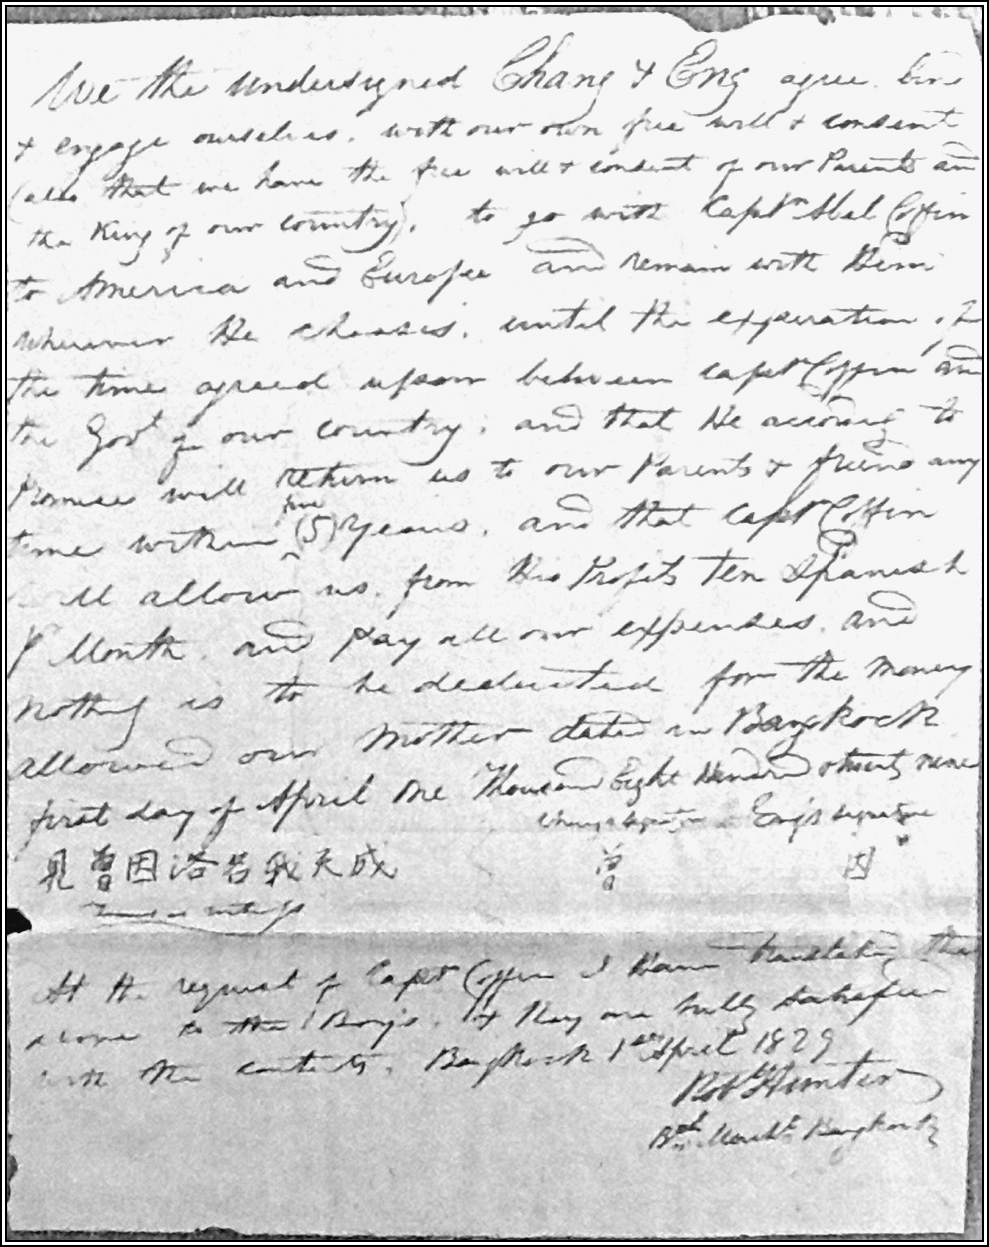 We the undersigned Chang & Eng agree bind
& engage ourselves, with our own free will & consent
(also that we have the free will & consent of our Parents and
the King of our country), to go with Captn Abel Coffin
to America and Europe and remain with Him
wherever He chooses, until the experation of
the time agreed upon between Capt Coffin and
the Govt of our country, and that He according to
Promise will return us to our Parents & friend any
time within five (5) Years, and that Capt Coffin
will allow us, from His Profits Ten Spanish
P Month, and pay all our expenses, and
nothing is to be deducted for the money
allowed our Mother dated in Bangkock
first day of April One Thousand Eight Hundred & twenty nine
Chang's signature Eng's signature
曾因 天成
曾 因
At the request of Capt Coffin I Have
to the Boys, & they are fully satisfied
with the contents, Bangkock 1st April 1829
Robt Hunter
Bsh Marcht Bangkock